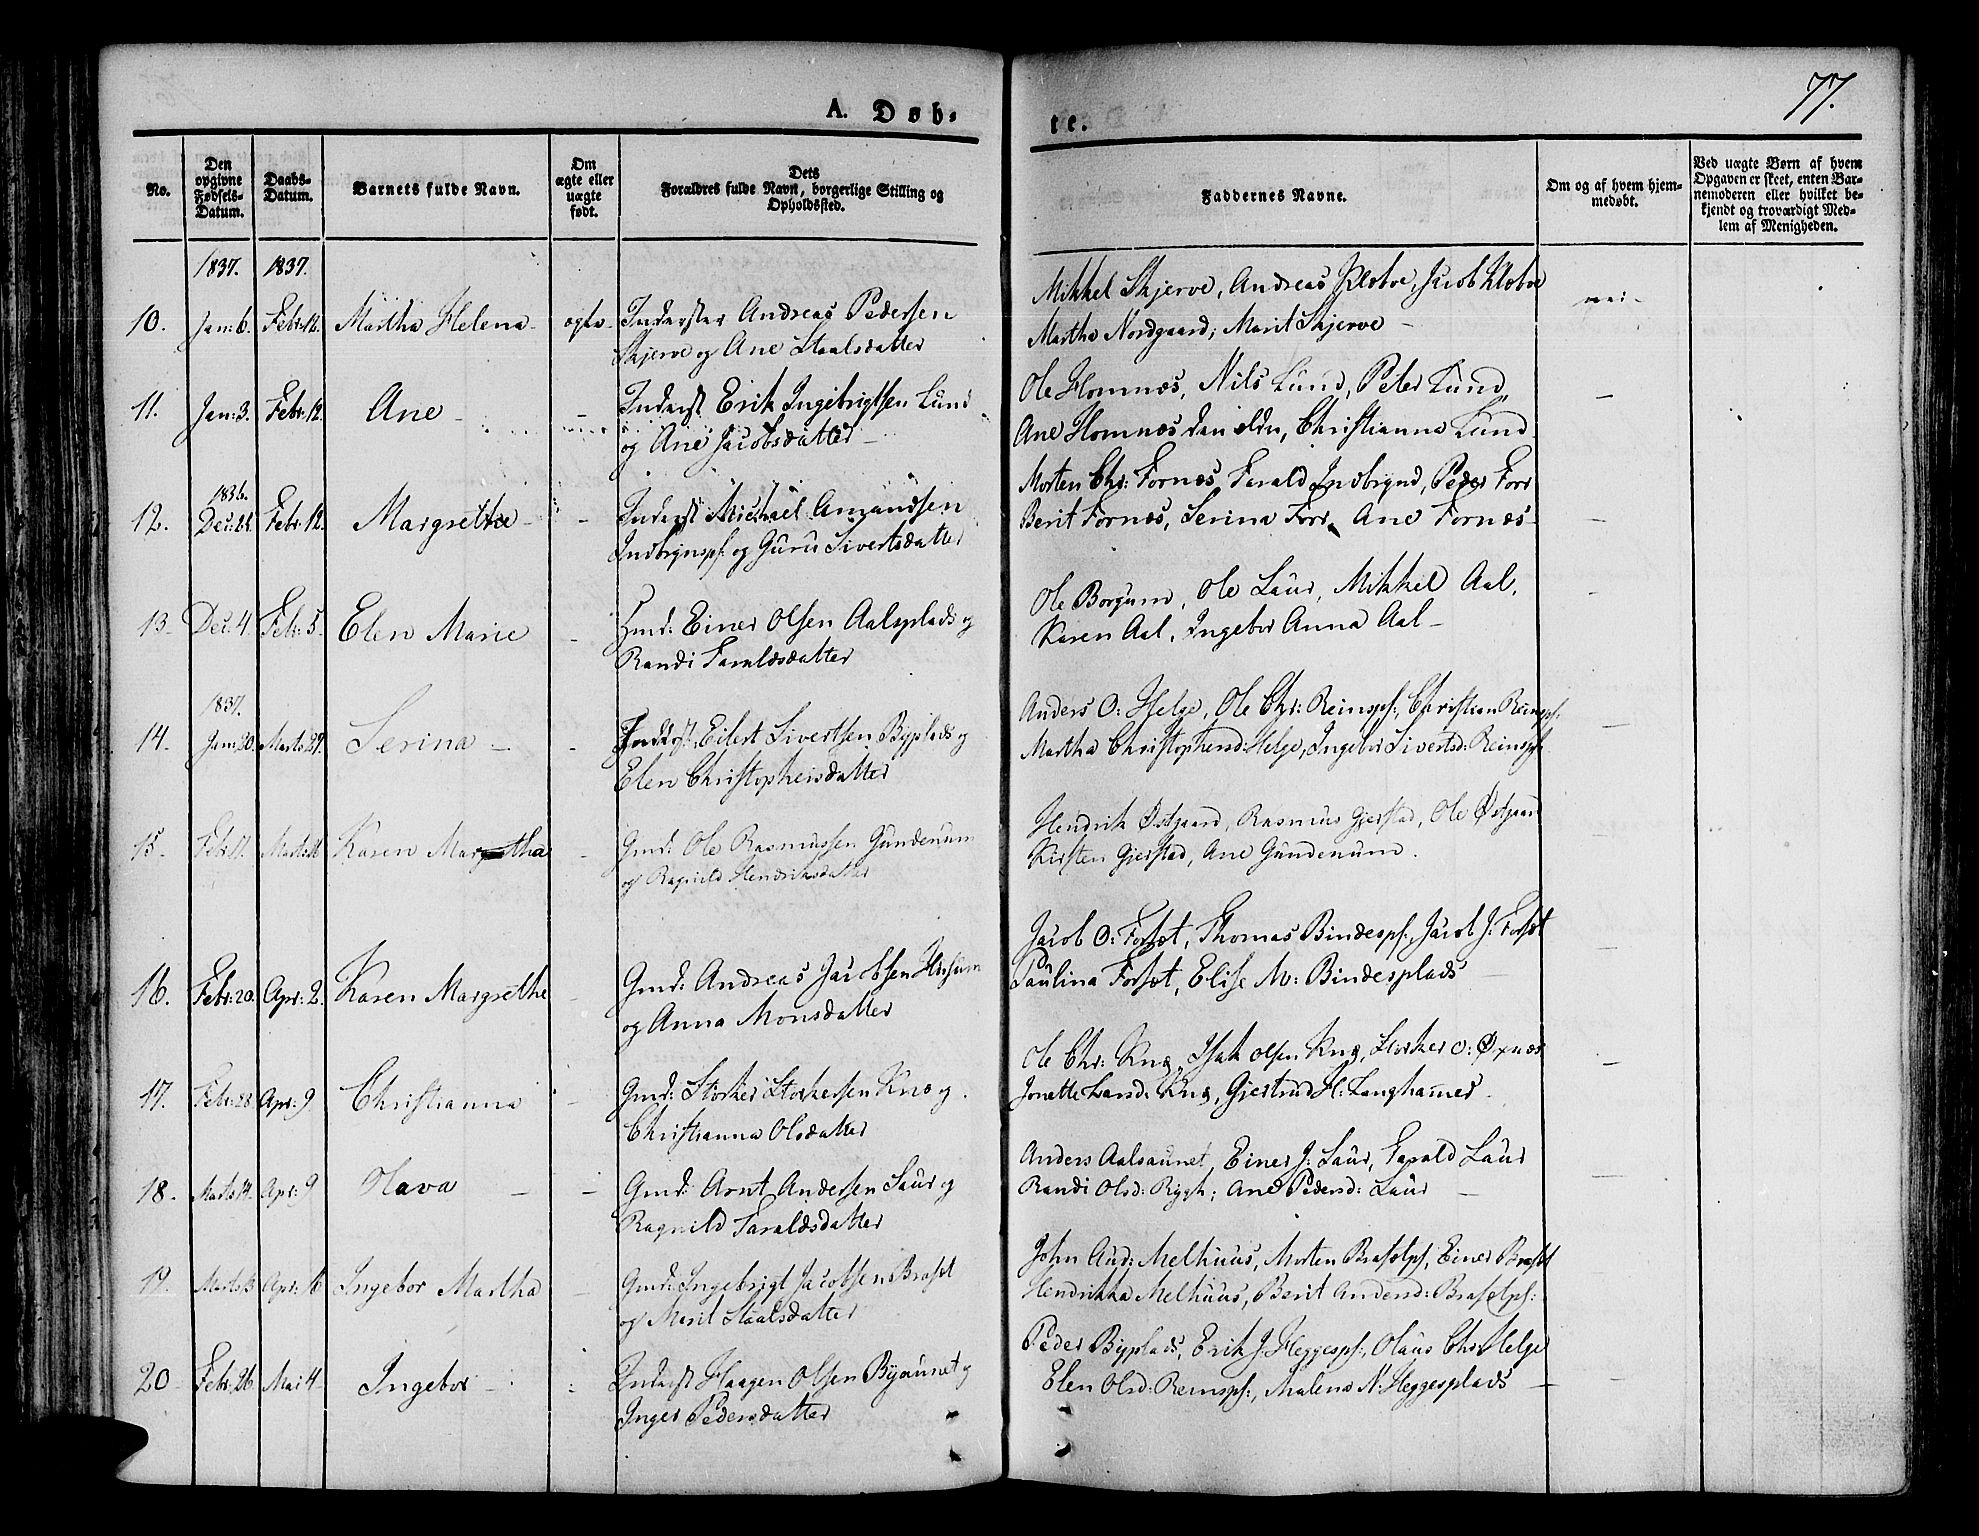 77.
A. Døb-
te.
No.
Den opgivne Fødsels-Datum.
Daabs-Datum.
Barnets fulde Navn.
Om ægte eller uægte født.
Dets Forældres fulde Navn, borgerlige Stilling og Opholdssted.
Faddernes Navne.
Om og af hvem hjem-medøbt.
Ved uægte Børn af hvem Opgaven er skeet, enten Bar-nemoderen eller hvilket be-kjendt og troværdigt Med-lem af Menigheden.
1837. 1837.
10. Jan: 6. Febr: 12. Martha Helena - ægte - Inderster Andreas Pedersen
Skjerve og Ane Staalsdatter
Mikkel Skjerve, Andreas Kløtve, Jacob Kløtve
Martha Nordgaard, Marit Skjerve - nei -
11. Jan: 3. Febr: 12. Ane - - Inderst Erik Ingebrigtsen Lund
og Ane Jacobsdatter -
Ole Homnæs, Nils Lund, Peter Lund,
Ane Homnæs den eldr, Christianna Lund -
1836.
12. Dec: Febr: 12. Margrethe - - Inderst Michael Amundsen
og Guru Sivertsdatter
Morten Chr: Fornæs, Farald Indbrynd, Peder Forr
Berit Fornæs, Serina Forr, Ane Fornæs - -
13. Dec: 4. Febr: 5. Elen Marie - Gmd: Einer Olsen Aalsplads og
Randi Faraldsdatter
Ole Borgum, Ole Laur, Mikkel Aal,
Karen Aal, Ingebor Anna Aal - -
1837.
14. Jan: 20. Marts 27. Serina - - Inderst Eilert Sivertsen Byplads og
Elen Christophersdatter
Anders O: Helge, Ole Chr: Reinspl:, Christian Reinspl:
Martha Christophersd: Helge, Ingebor Sivertsd: Reinspl: -
15. Febr: Marts Karen Margretha - Gmd: Ole Rasmussen Gundenum
og Ragnild Hendriksdatter
Hendrik Østgaard, Rasmus Gjerstad, Ole Østgaard
Kirsten Gjerstad, Ane Gundenum. -
16. Febr: 20. Apr: 2. Karen Margrethe - Gmd: Andreas Jacobsen Husum
og Anna Monsdatter
Jacob O: Forsæt, Thomas Bindespl:, Jacob J: Forsæt
Paulina Forsæt, Elise M: Bindesplads - -
17. Febr: 28. Apr: 9. Christianna - Gmd: Storker Storkersen Knæ og
Christianna Olsdatter
Ole Chr: Knæ, Isak Olsen Knæ, Storker O: Øxnæs
Jonetta Larsd: Knæ, Gjertrud H: Langhammer. -
18. Marts 14. Apr: 9. Olava - - Gmd: Arnt Andersen Laur og
Ragnild Faraldsdatter
Anders Aalsaunet, Einer J: Laur, Farald Laur
Randi Olsd: Riggh, Ane Pedersd: Laur - -
19. Marts Apr: 16. Ingebor Martha - Gmd: Ingebrigt Jacobsen Brasæt
og Marit Staalsdatter
John And: Melhuus, Morten Brasætpl:, Einer Brasæt
Hendrikka Melhuus, Berit Andersd: Brasætpl:
20 - Febr: 26. Mai 4. Ingebor - - Inderst Haagen Olsen Byaunet og
Inger Pedersdatter
Peder Byplads, Erik J: Heggespl:, Olaus Chr: Helge
Elen Olsd: Reinspl:, Malena N: Heggesplads - -